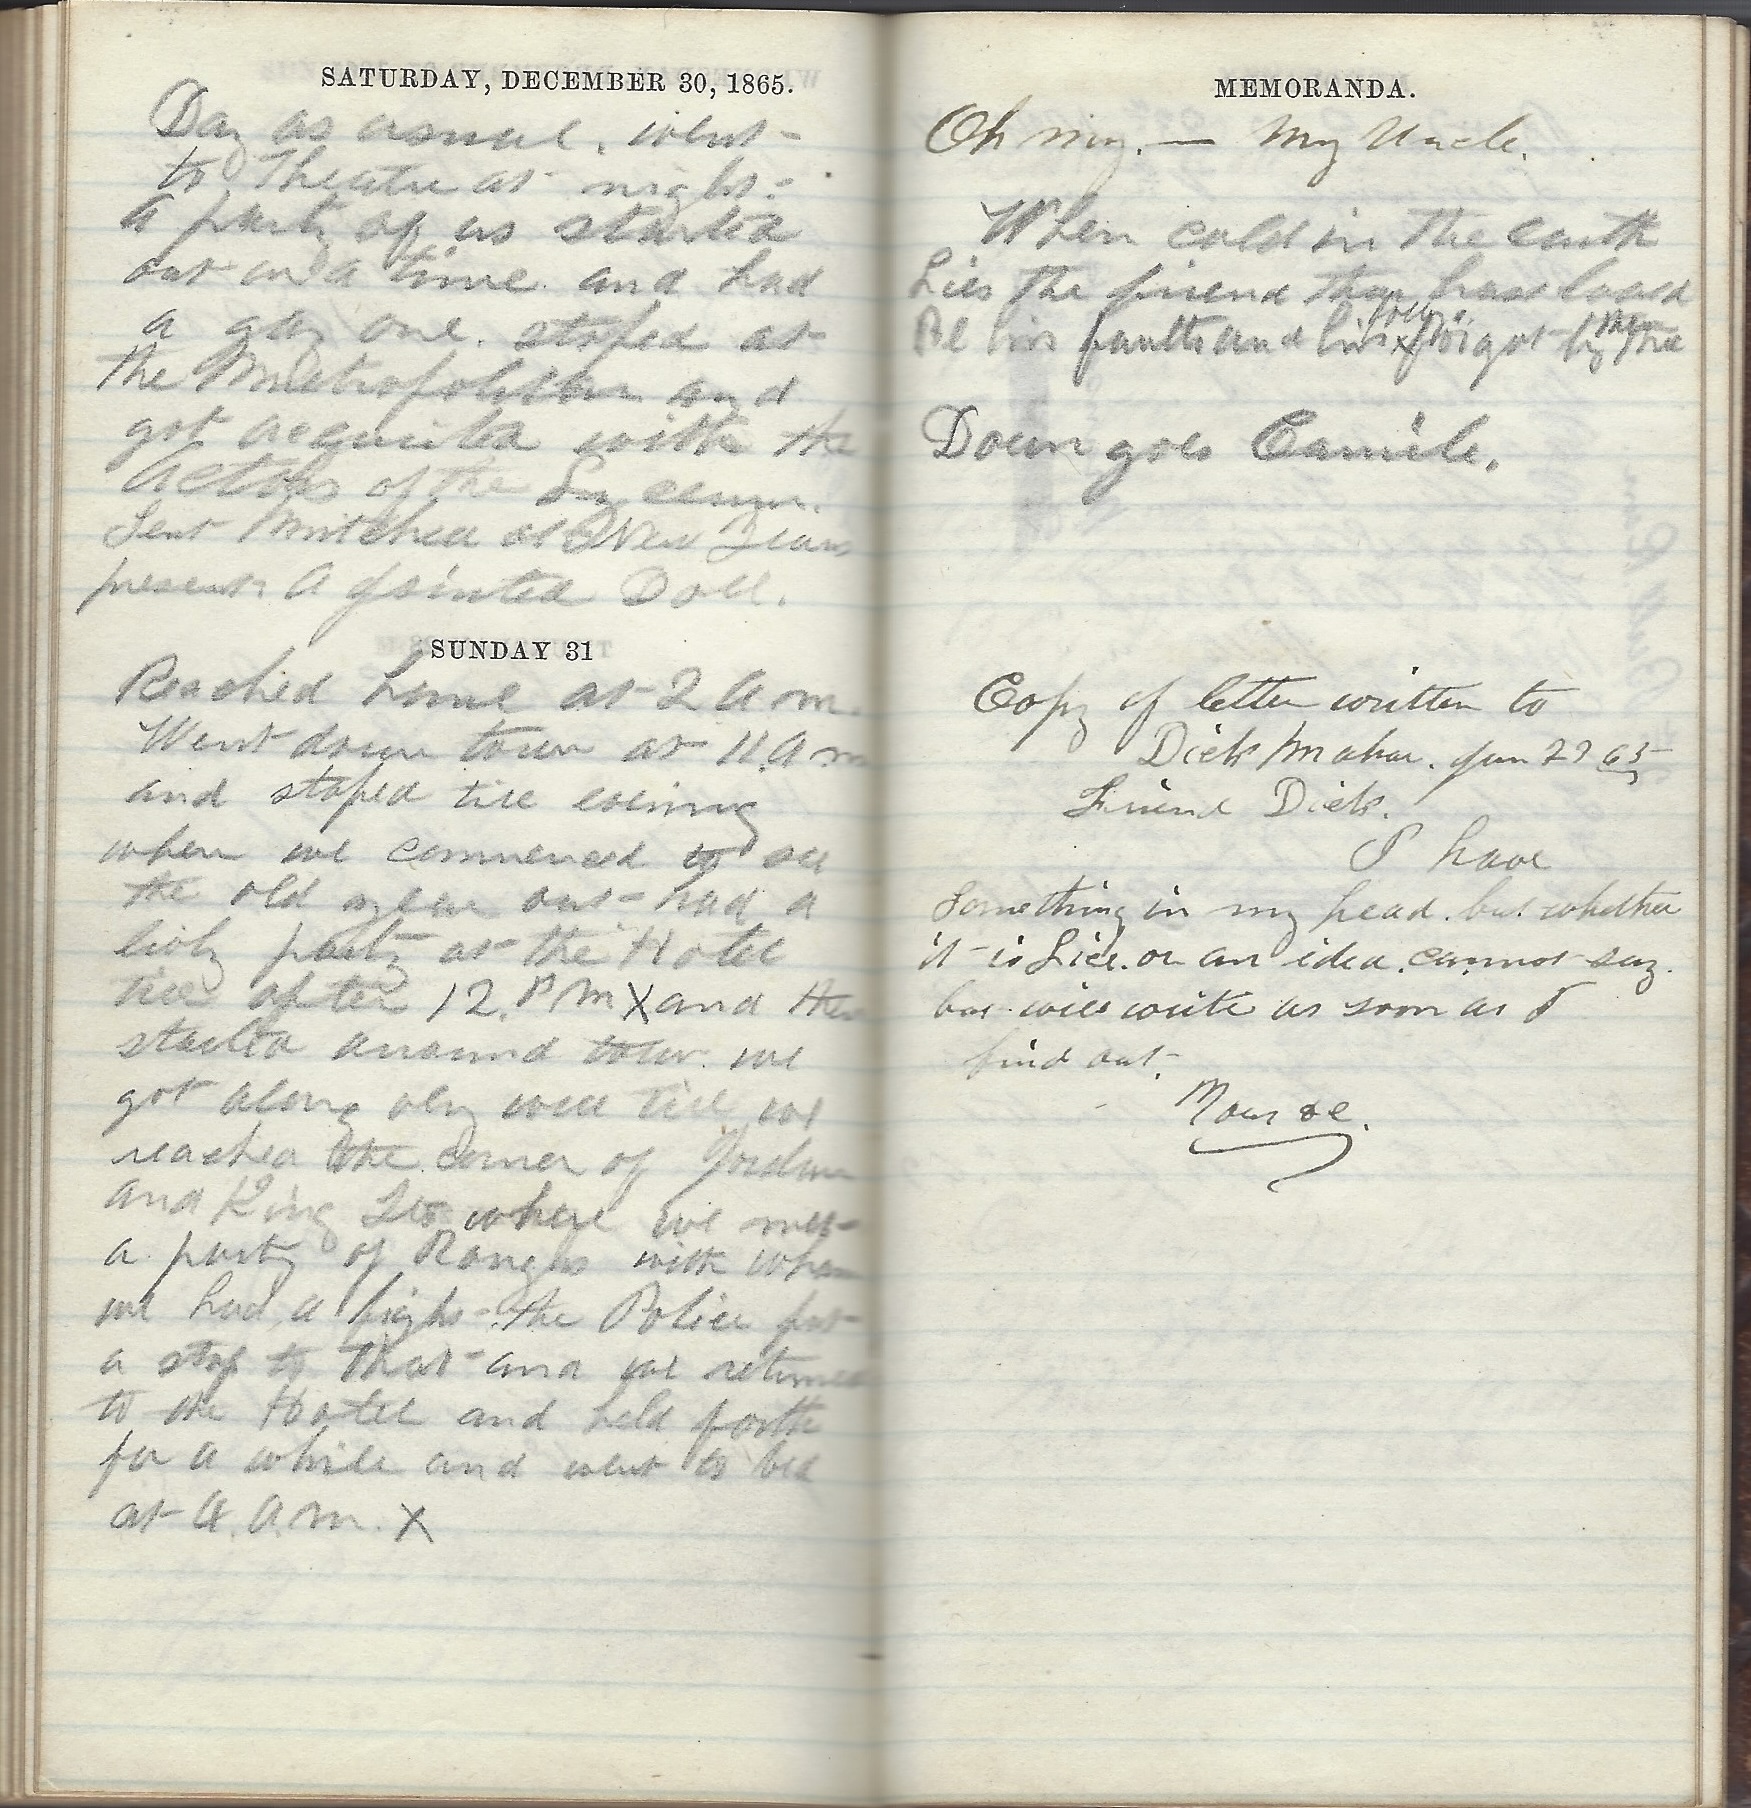 SATURDAY, DECEMBER 30, 1865.
Day as usual. went
to Theatre at night.
A party of us started
out on a time and had
a gay one. stoped at
the Metropolitan and
got acquited with the
Actors of the Lyceum.
Sent Mitchell a New Years
present. A jointed Doll.
SUNDAY 31
Reached home at 2 A m.
Went down town at 11. A m
and stoped till evening
when we commenced to see
the old year out- had a
livly party at the Hotel
till after 12. P M X and then
started around town. we
got along very well till we
reached the corner of Jordan
and King Sts where we met
a party of Roughs with whom
we had a fight- the Police put
a stop to that- and we returned
to the Hotel and held forth
for a while and went to bed
at 4. A. m. X
MEMORANDA.
Oh my. — My Uncle.
When cold in the earth
Lies the friend thou hast loved
Be his faults and his forgot by thee
Down goes Camile.
Copy of letter written to
Dick Mahar. Jan 23 65
Friend Dick.
I have
Something in my head. but whether
it is Lice. or an idea. cannot say.
but will write as soon as I
find out.
Monroe.